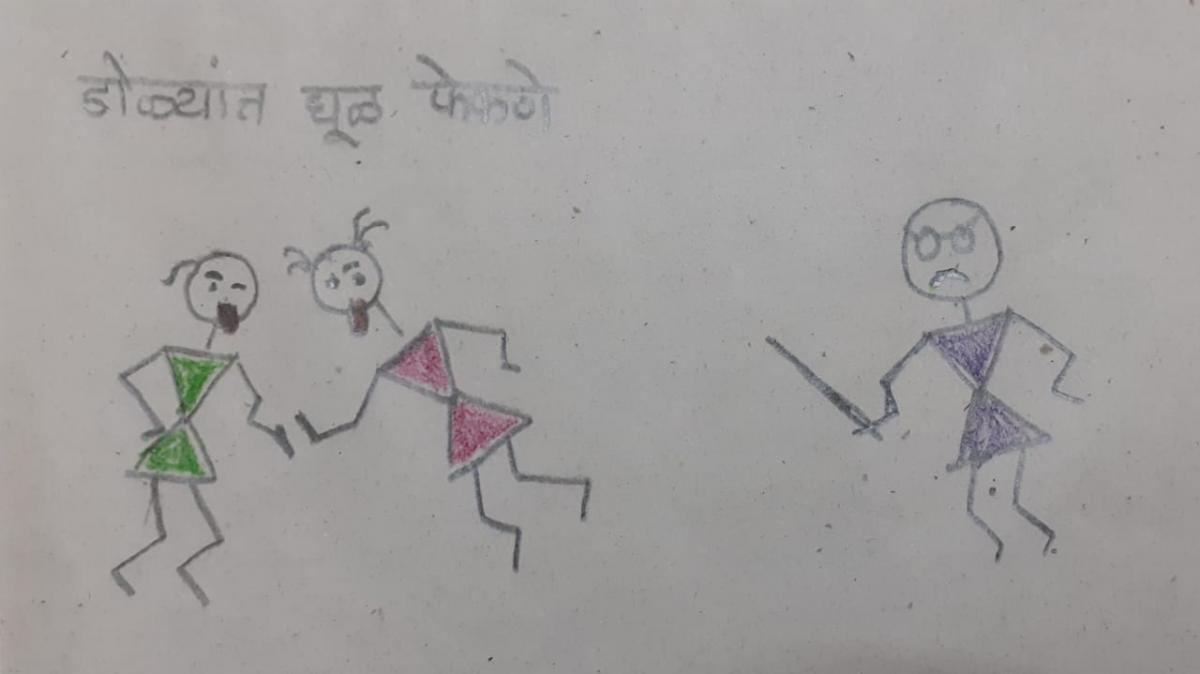 डोळ्यांत धूळ फेकणे